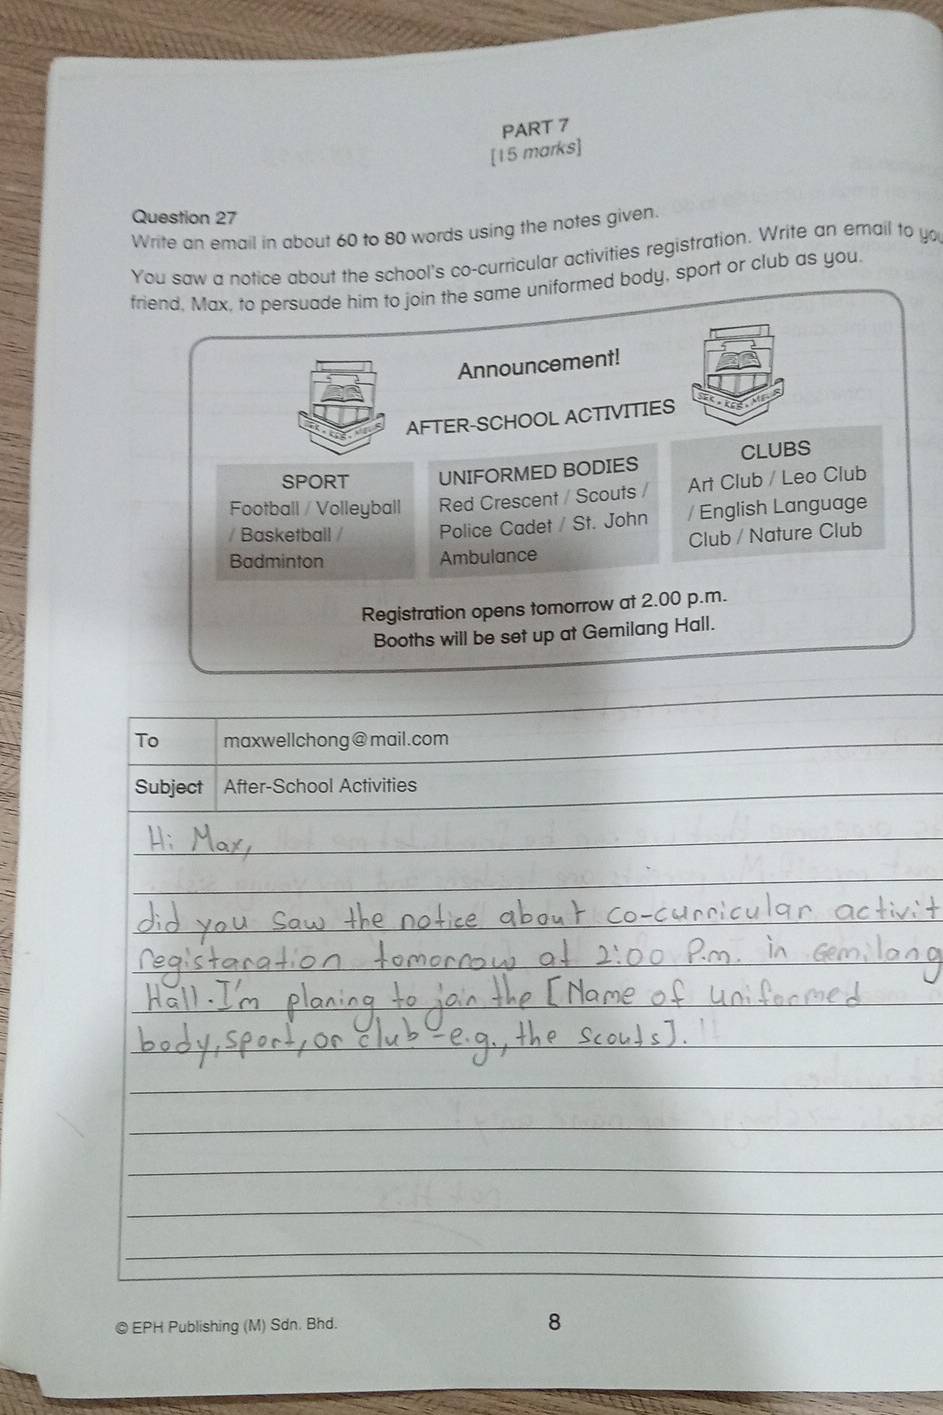 PART 7
[15 marks]
Question 27
Write an email in about 60 to 80 words using the notes given.
You saw a notice about the school's co-curricular activities registration. Write an email to
friend, Max, to persuade him to join the same uniformed body, sport or club as you.
Announcement!
AFTER-SCHOOL ACTIVITIES
SPORT
Football / Volleyball
/ Basketball /
Badminton
UNIFORMED BODIES
Red Crescent / Scouts /
Police Cadet / St. John
Ambulance
CLUBS
Art Club / Leo Club
/ English Language
Club / Nature Club
Registration opens tomorrow at 2.00 p.m.
Booths will be set up at Gemilang Hall.
To maxwellchong@mail.com
Subject After-School Activities
Hi Max,
did you saw the notice about co-curricular activit
registaration tomorrow at 2:00 P.m. in Gemilang
Hall. I'm planing to join the [Name of uniformed
body, sport, or club - e.g., the scouts].
© EPH Publishing (M) Sdn. Bhd.
8